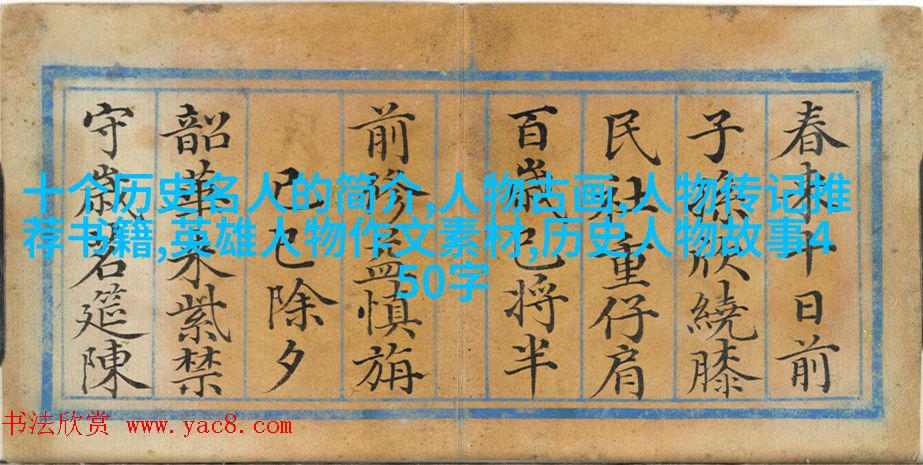 十个历史名人的简介,人物古画,人物传记推
荐书籍,英雄人物作文素材,历史人物故事4
50字
春来十日前
子孫欣繞膝
民社重仔肩
百歲已将半
前益慎旃
己巳除夕
韶華来紫禁
守歲筵陳
书法欣赏 www.yac8.com